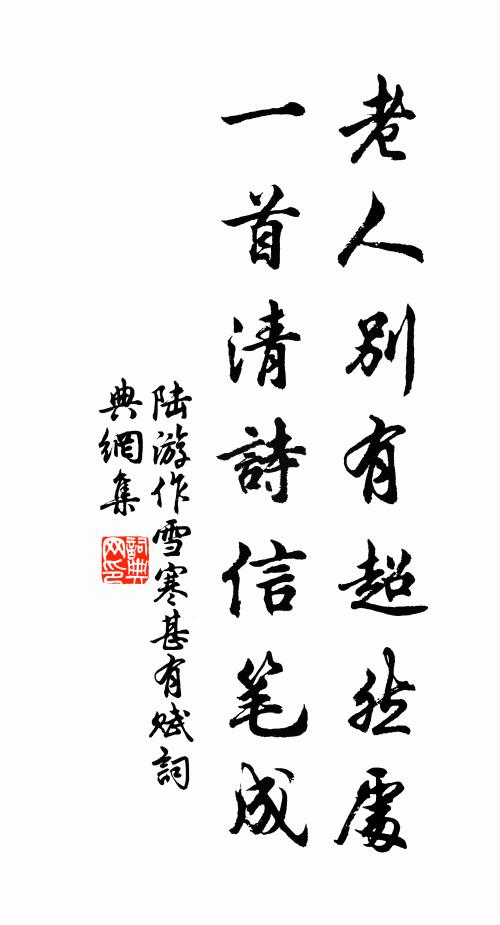 老人别有超然處
一首清詩信笔成
陆游作雪寒甚有赋詞
典網集
詞典网印